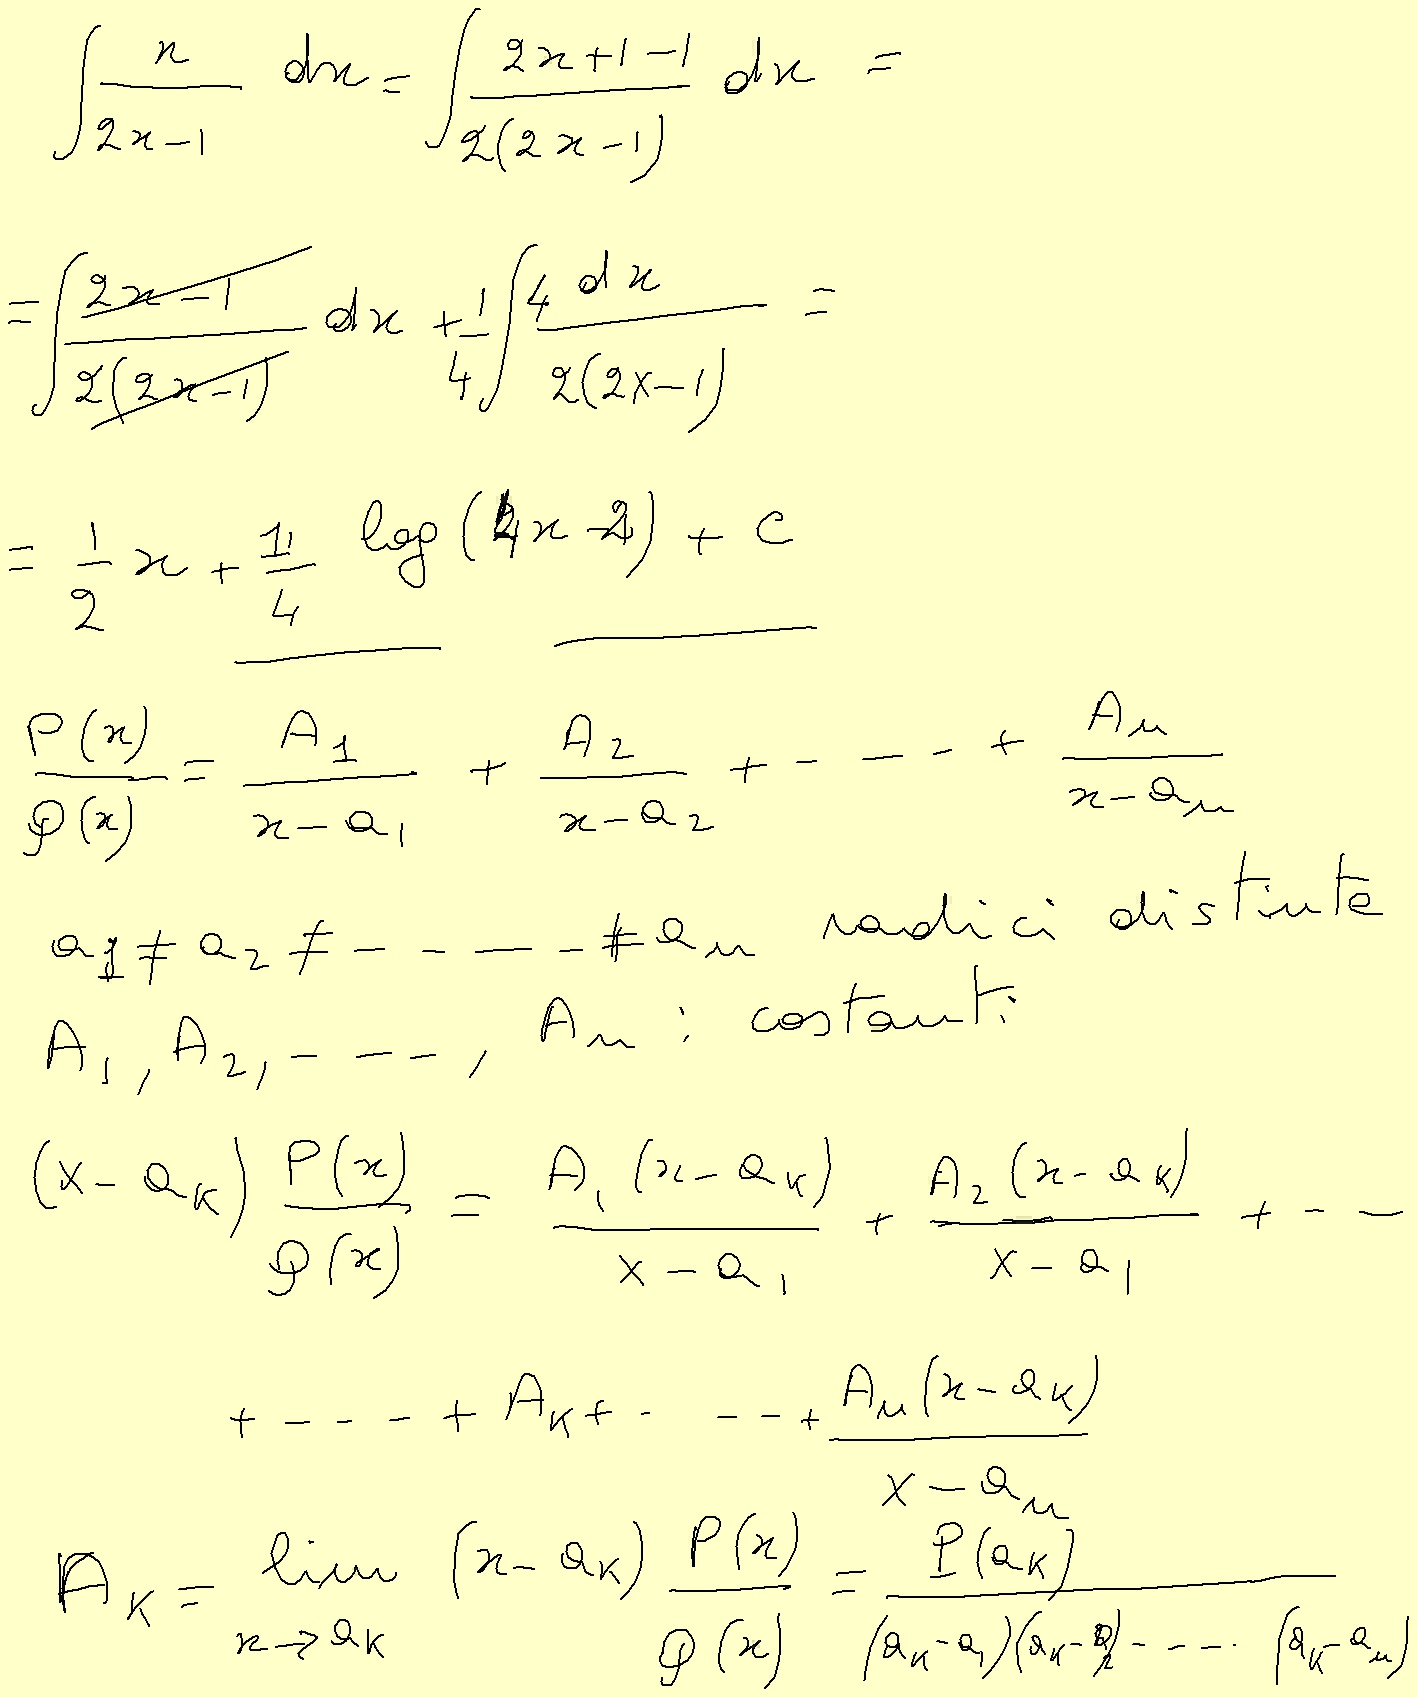 ∫ x/(2x-1) dx = ∫ (2x+1-1)/(2(2x-1)) dx =
= ∫ (2x-1)/(2(2x-1)) dx + 1/4 ∫ 4 dx/(2(2x-1)) =
= 1/2 x + 1/4 log (4x-2) + c
P(x)/Q(x) = A1/(x-a1) + A2/(x-a2) + - - - - + An/(x-an)
a1 ≠ a2 ≠ - - - - ≠ an radici distinte
A1, A2, - - - -, An : costanti
(x-aK) P(x)/Q(x) = A1(x-aK)/(x-a1) + A2(x-aK)/(x-a1) + - -
+ - - - - + AK + - - - - + An(x-aK)/(x-an)
AK = lim x→aK (x-aK) P(x)/Q(x) = P(aK)/((aK-a1)(aK-a2) - - - - (aK-an))